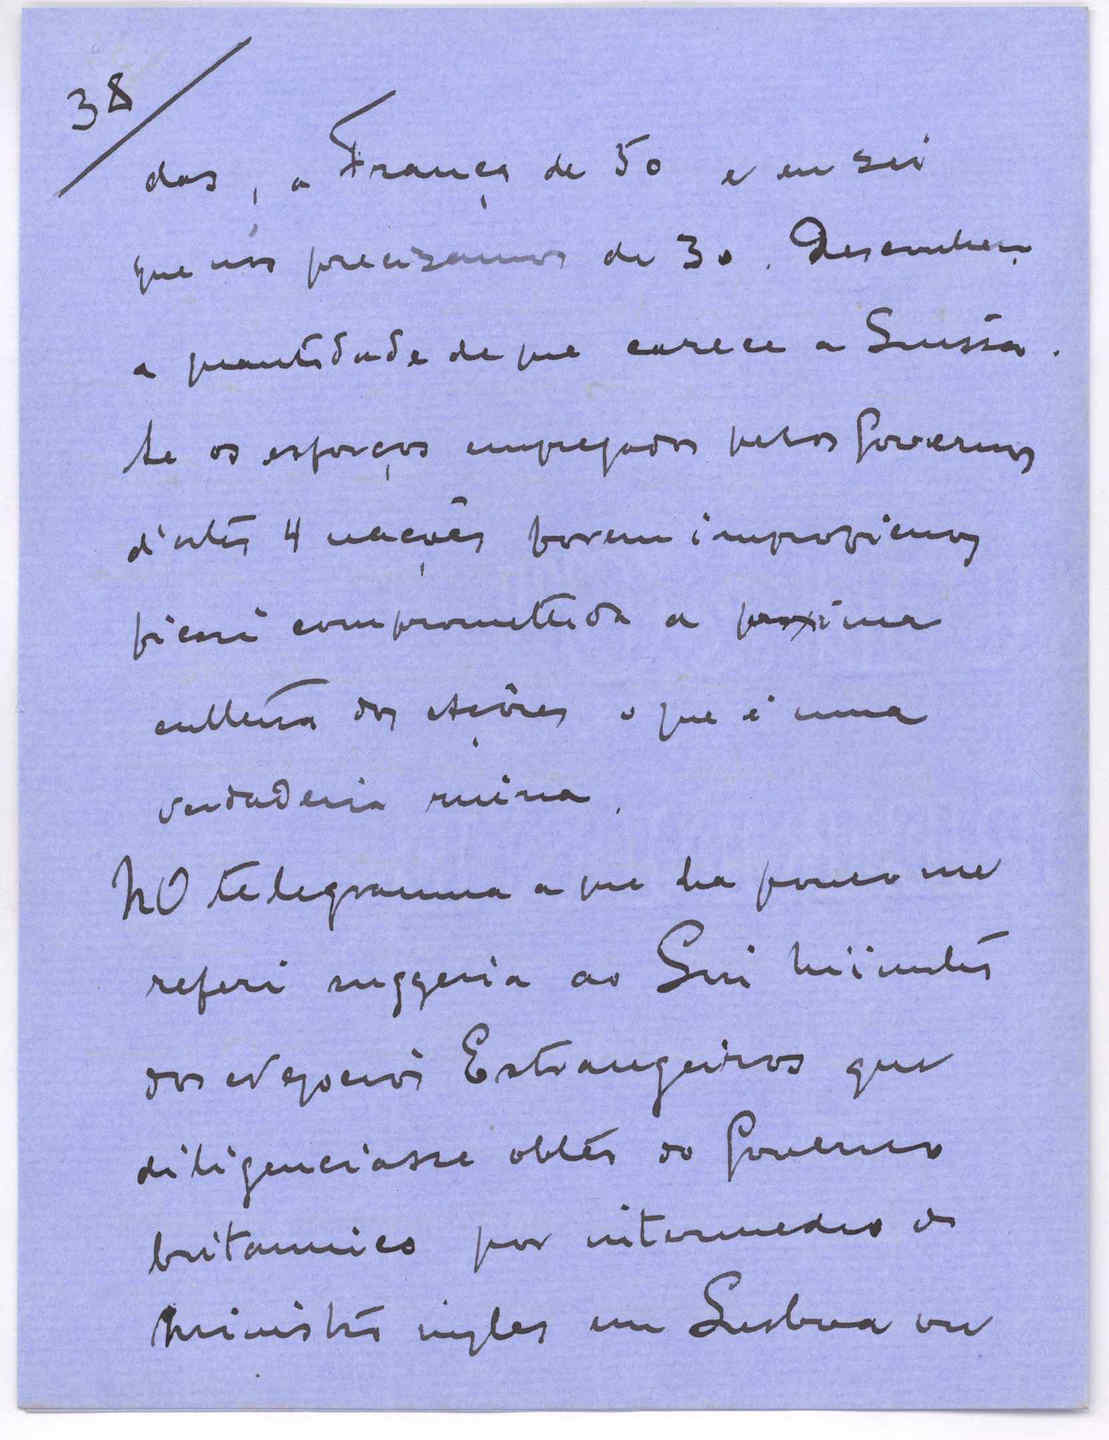 38
das, a França de 50 e eu sei
que nós precizamos de 30. Desconheço
a quantidade de que carece a Suissa.
Se os esforços empregados pelos Governos
d'estes 4 nações forem improficuos
ficará compromettida a proxima
cultura dos Açôres o que é uma
verdadeira ruina.
NO telegramma a que ha pouco me
referi suggeria ao Snr Ministro
dos Negocios Estrangeiros que
diligenciasse obter do Governo
britannico por intermedio do
Ministro inglez em Lisboa ou